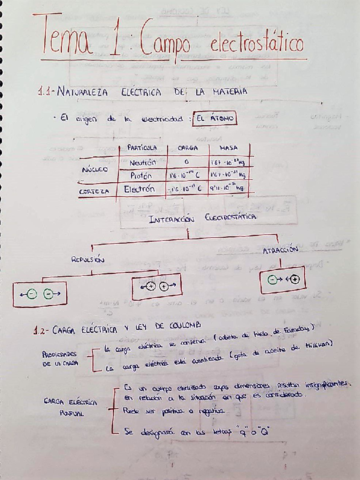 Tema 1: Campo electrostático
1.1- NATURALEZA ELECTRICA DE LA MATERIA
· El origen de la electricidad: EL ÁTOMO
PARTÍCULA CARGA MASA
NÚCLEO Neutrón 0
Protón
CORTEZA Electrón
INTERACCIÓN ELECTROSTÁTICA
REPULSIÓN ATRACCIÓN
- - + + - +
1.2- CARGA ELÉCTRICA Y LEY DE COULOMB
PROPIEDADES DE LA CARGA
La carga eléctrica se conserva (cubeta de hielo de Faraday)
La carga eléctrica está cuantizada (gota de aceite de Millikan)
CARGA ELÉCTRICA PUNTUAL
Es un campo electrizado cuyas dimensiones resultan insignificantes
en relación a la situación en que es considerado
Puede ser positiva o negativa
Se designará con las letras "q" o "Q"